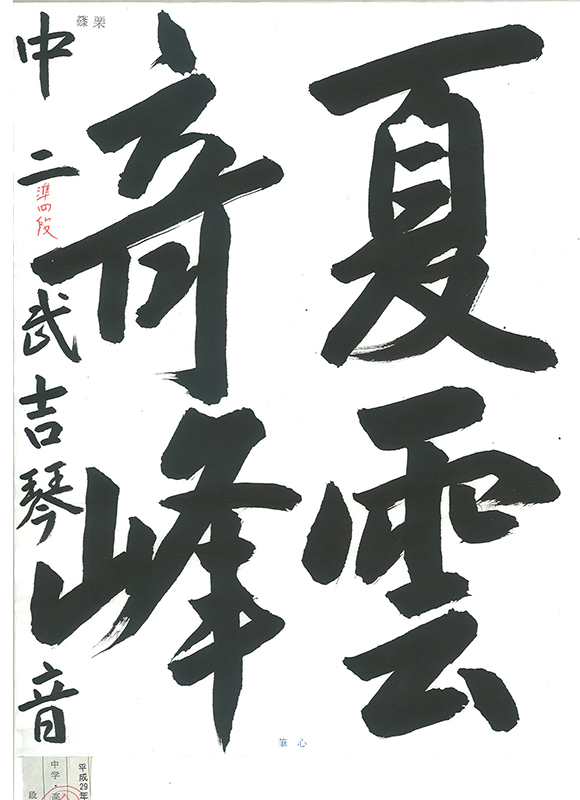 夏雲
奇峰
中二 武吉琴音
準四段
篠栗
筆心
平成29年
中学・高
段